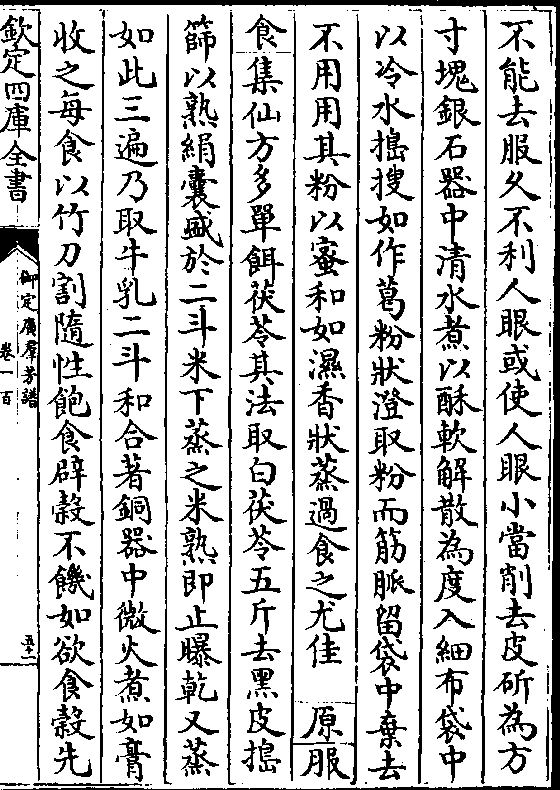 不能去服久不利人眼或使人眼小當削去皮斫為方
寸塊銀石器中清水煮以酥軟解散為度入細布袋中
以冷水搗搜如作葛粉狀澄取粉而筋脈留袋中棄去
不用用其粉以蜜和如濕香狀蒸過食之尤佳 原 服
食 集仙方多單餌茯苓其法取白茯苓五斤去黑皮搗
篩以熟絹囊盛於二斗米下蒸之米熟即止曝乾又蒸
如此三遍乃取牛乳二斗和合著銅器中微火煮如膏
收之每食以竹刀割隨性飽食辟穀不饑如欲食穀先
欽定四庫全書
御定廣羣芳譜
卷一百